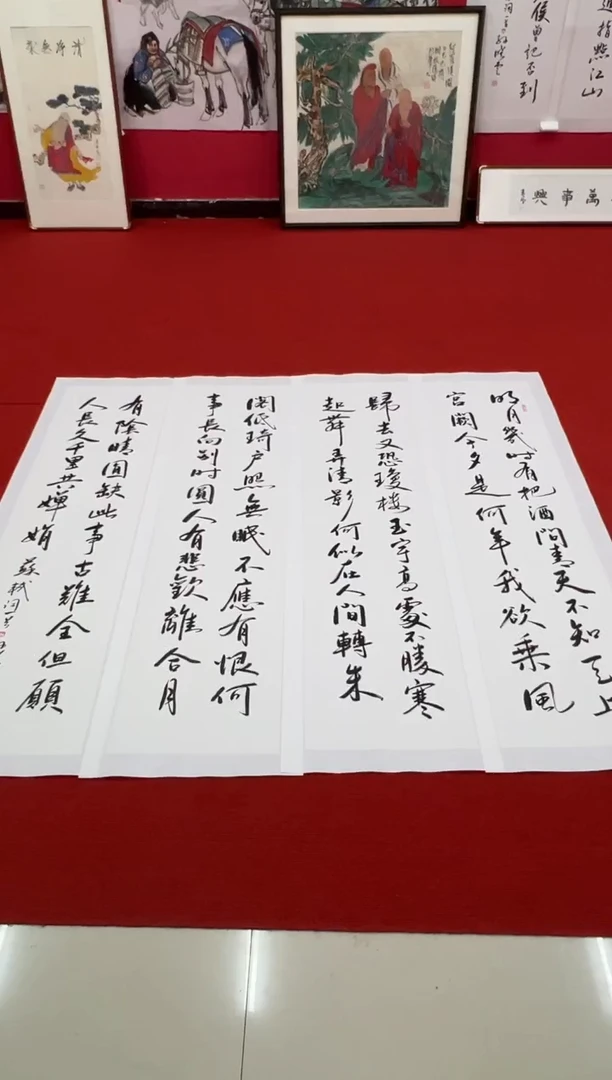 指點江山
侯曾记否到
萬事興
明月幾时有把酒問青天不知天上
宮闕今夕是何年我欲乘風
歸去又恐瓊樓玉宇高處不勝寒
起舞弄清影何似在人間轉朱
閣低綺户照無眠不應有恨何
事長向别时圓人有悲歡離合月
有陰晴圓缺此事古難全但願
人長久千里共嬋娟 蘇軾词